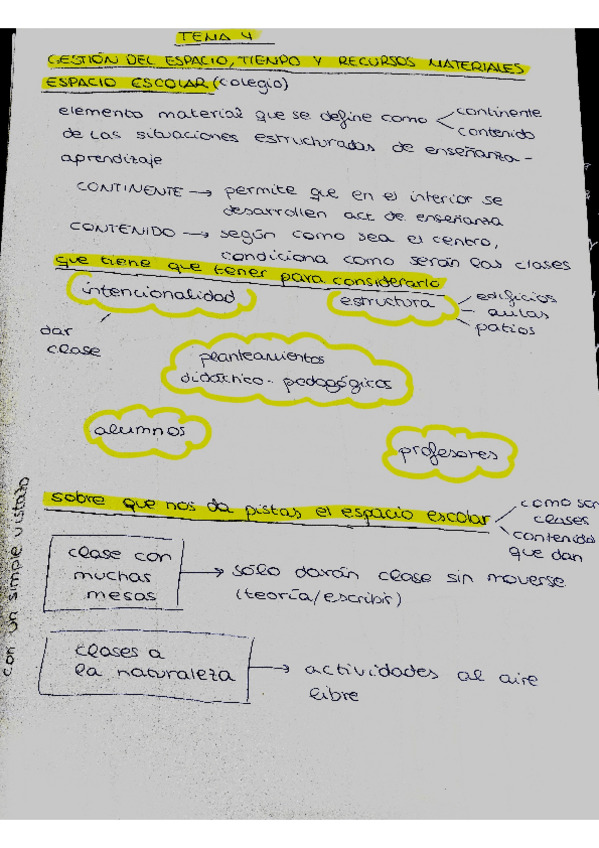 TEMA 4
GESTIÓN DEL ESPACIO, TIEMPO Y RECURSOS MATERIALES
ESPACIO ESCOLAR (colegio)
elemento material que se define como continente
contenido
de las situaciones estructuradas de enseñanza-
aprendizaje
CONTINENTE → permite que en el interior se
desarrollen act de enseñanza
CONTENIDO → según como sea el centro,
condiciona como serán las clases
que tiene que tener para considerarlo
intencionalidad
estructura
edificios
aulas
patios
dar
clase
planteamientos
didáctico-pedagógicos
alumnos
profesores
sobre que nos da pistas el espacio escolar
como ser
clases
contenidos
que dan
con un simple vistazo
clase con
muchas
mesas
→ sólo darán clase sin moverse
(teoría/escribir)
clases a
la naturaleza
→ actividades al aire
libre